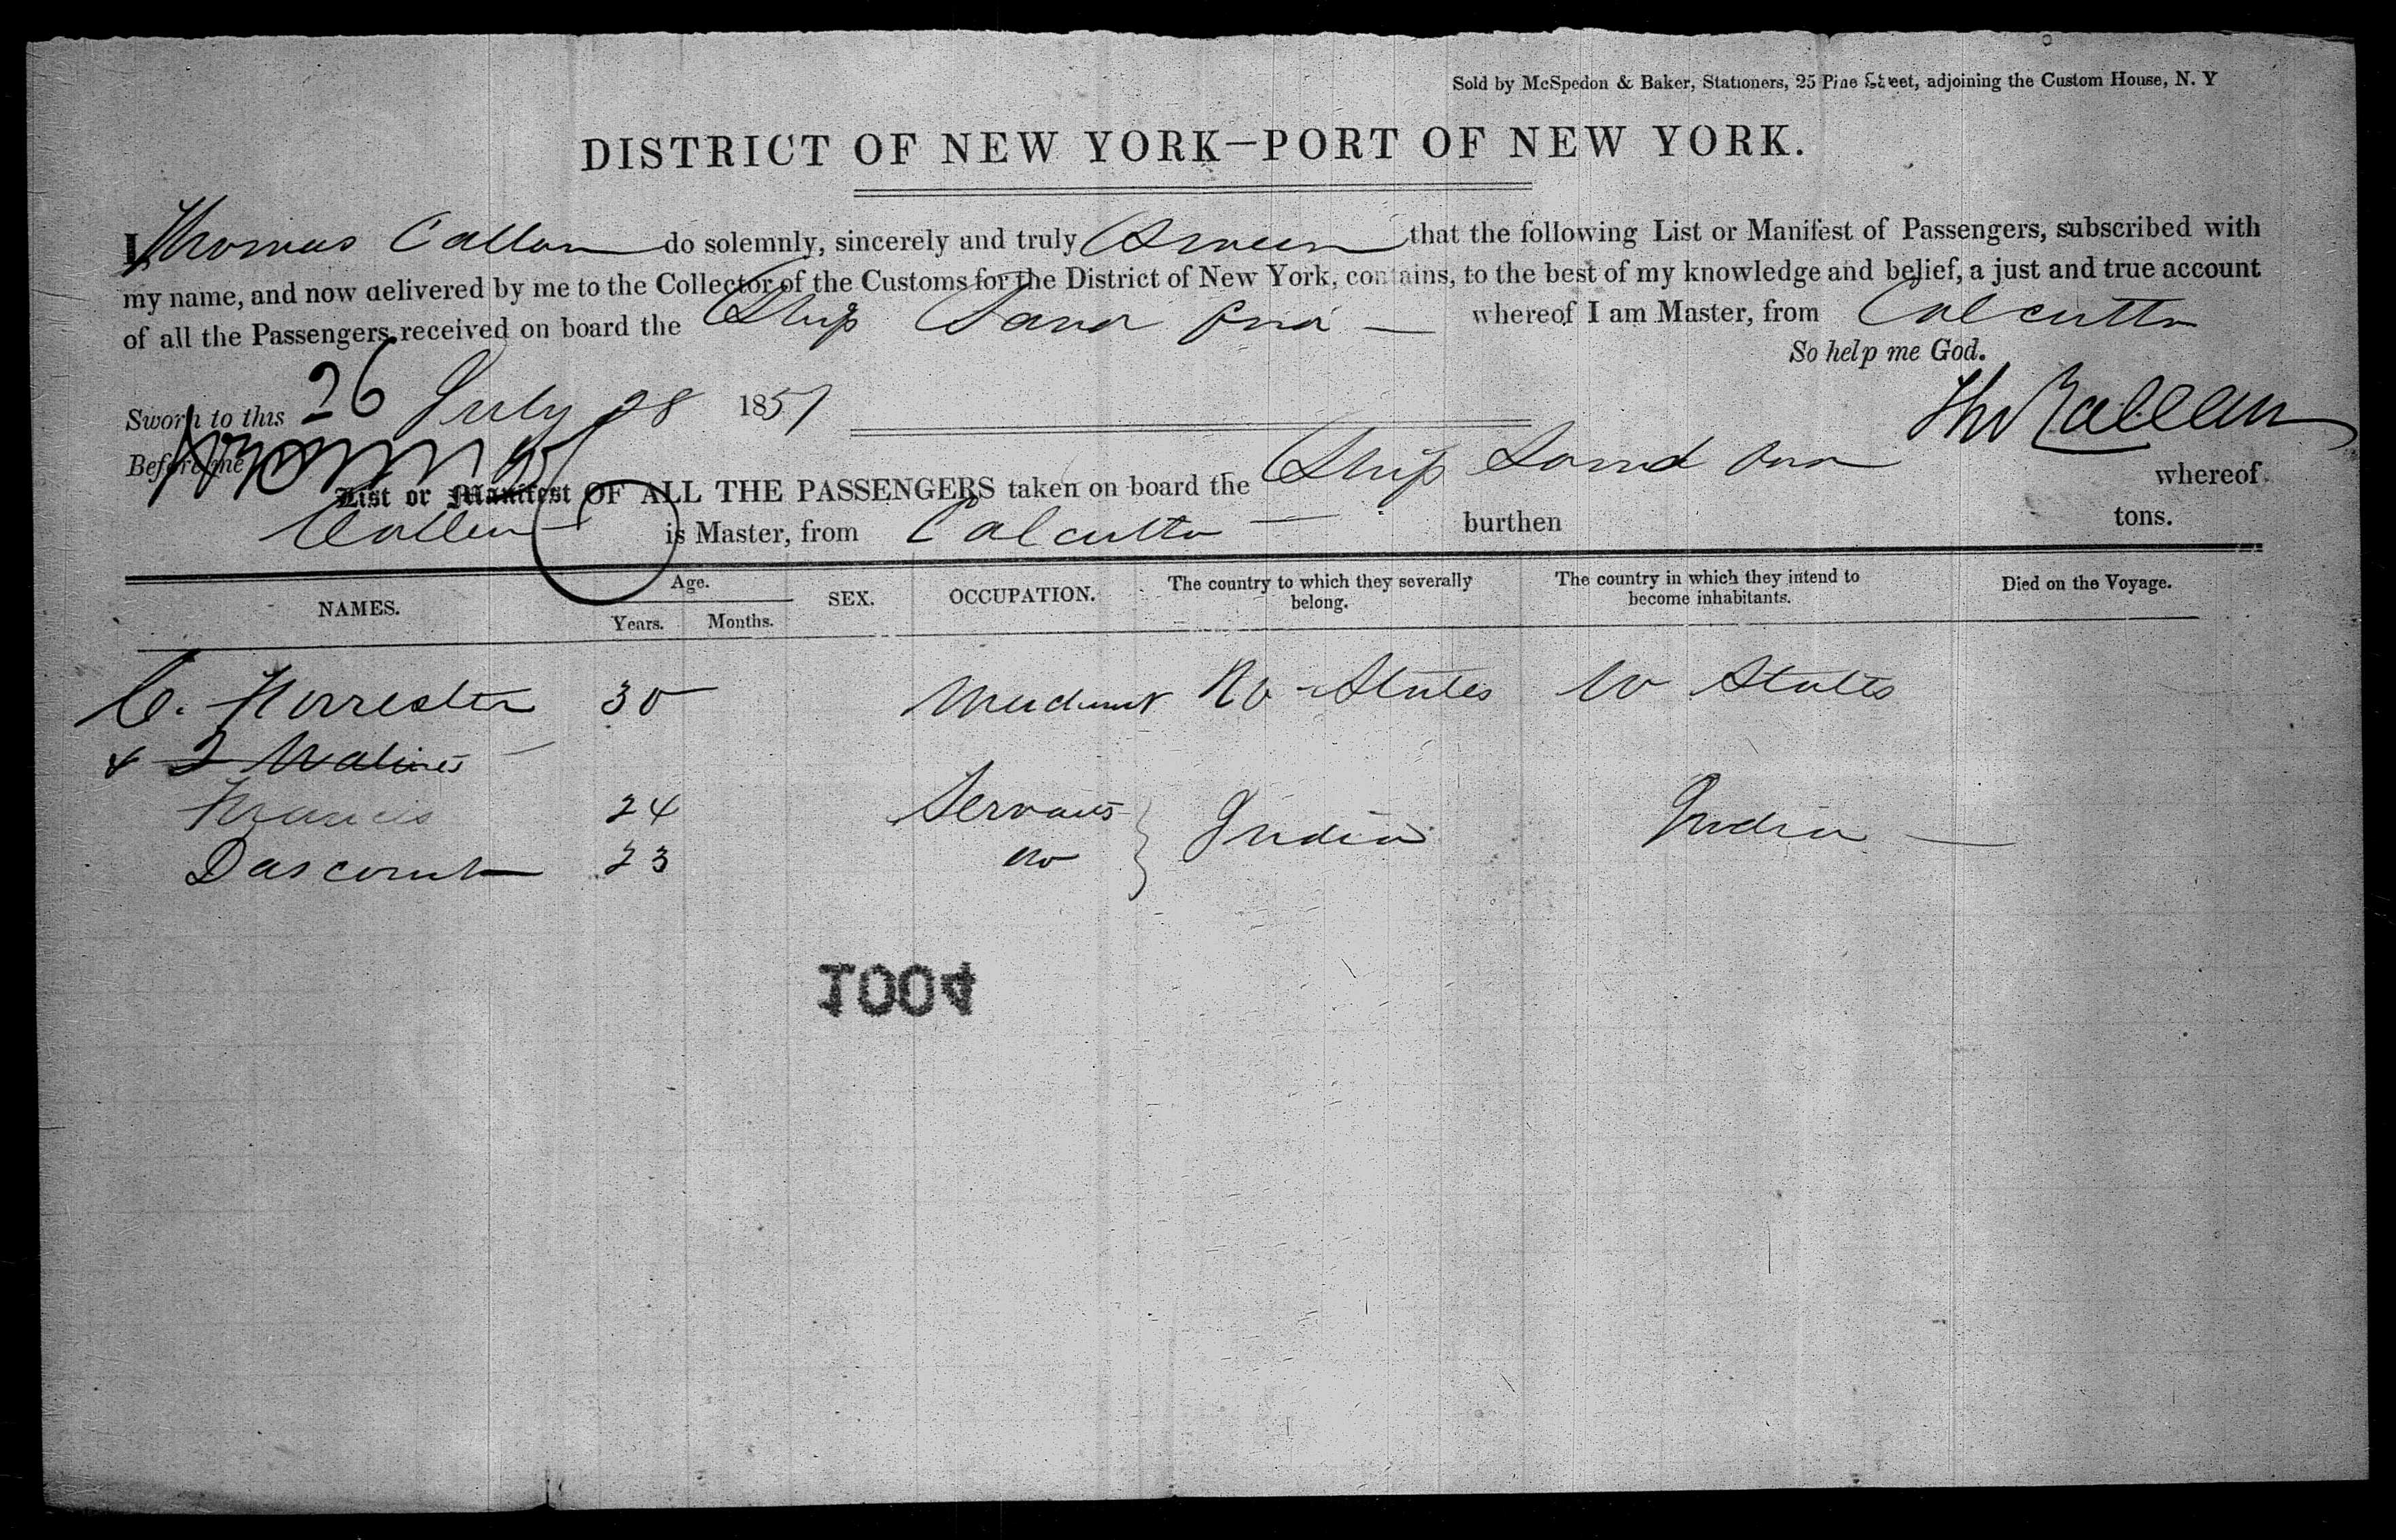 Sold by McSpedon & Baker, Stationers, 25 Pine Street, adjoining the Custom House, N. Y
DISTRICT OF NEW YORK—PORT OF NEW YORK.
I, Thomas Callan do solemnly, sincerely and truly Swear that the following List or Manifest of Passengers, subscribed with
my name, and now delivered by me to the Collector of the Customs for the District of New York, contains, to the best of my knowledge and belief, a just and true account
of all the Passengers received on board the Ship whereof I am Master, from Calcutta
So help me God.
Sworn to this 26 July 28 1851
Tho Callan
Before me
List or Manifest OF ALL THE PASSENGERS taken on board the Ship whereof
Callan is Master, from Calcutta burthen tons.
NAMES. Age. Years. Months. SEX. OCCUPATION. The country to which they severally belong. The country in which they intend to become inhabitants. Died on the Voyage.
C. Forrester 30 Merchant U States U States
& 2 Natives
Francis 24 Servants India India
Dascomb 23 do
1004